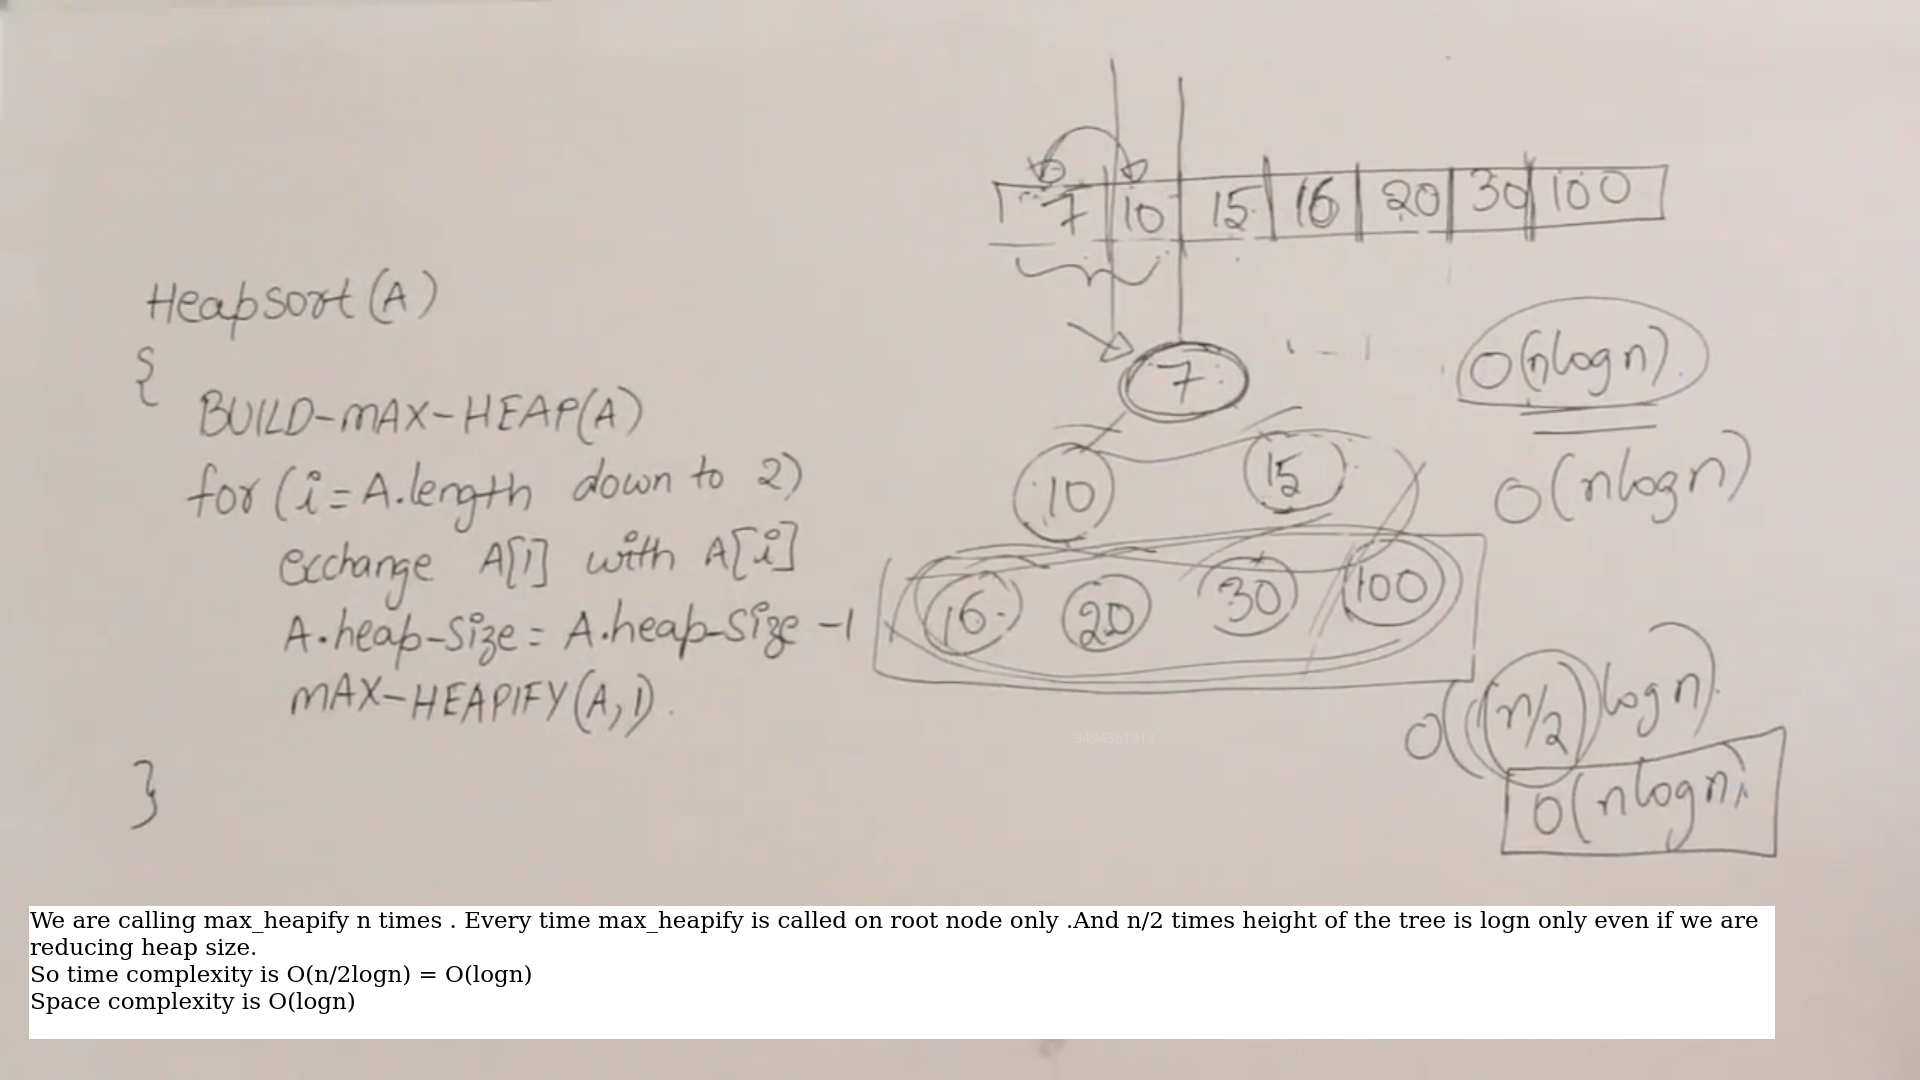 7 10 15 16 20 30 100
Heapsort(A)
{
BUILD-MAX-HEAP(A)
for (i = A.length down to 2)
exchange A[1] with A[i]
A.heap-size = A.heap-size -1
MAX-HEAPIFY(A,1).
}
7
10 15
16 20 30 100
O(nlogn)
O(nlogn)
O((n/2)logn)
O(nlogn)
9494361913
We are calling max_heapify n times . Every time max_heapify is called on root node only .And n/2 times height of the tree is logn only even if we are
reducing heap size.
So time complexity is O(n/2logn) = O(logn)
Space complexity is O(logn)